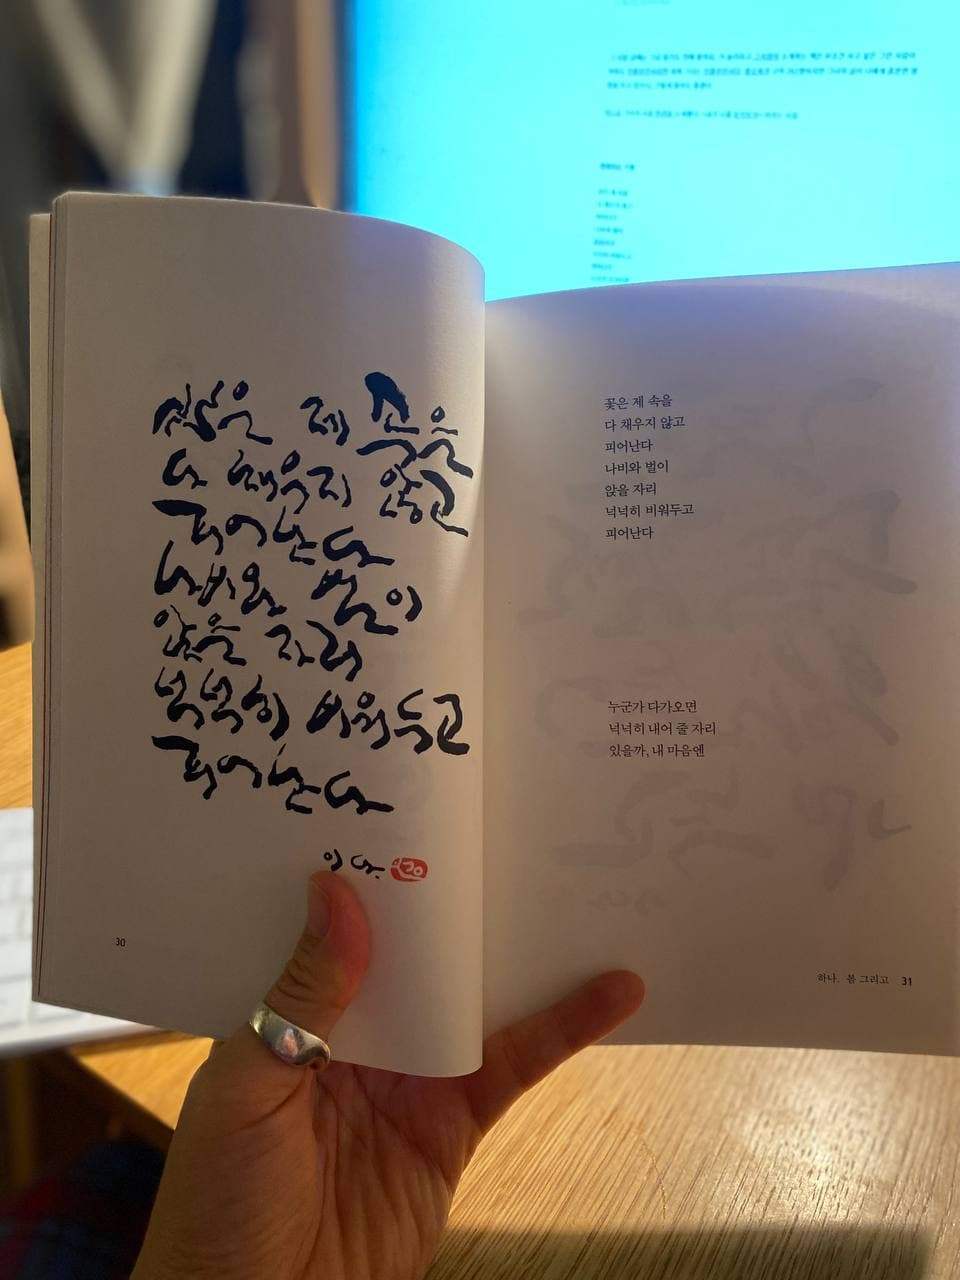 꽃은 제 속을
다 채우지 않고
피어난다
나비와 벌이
앉을 자리
넉넉히 비워두고
피어난다
이다.
30
꽃은 제 속을
다 채우지 않고
피어난다
나비와 벌이
앉을 자리
넉넉히 비워두고
피어난다
누군가 다가오면
넉넉히 내어 줄 자리
있을까, 내 마음엔
하나. 봄 그리고 31